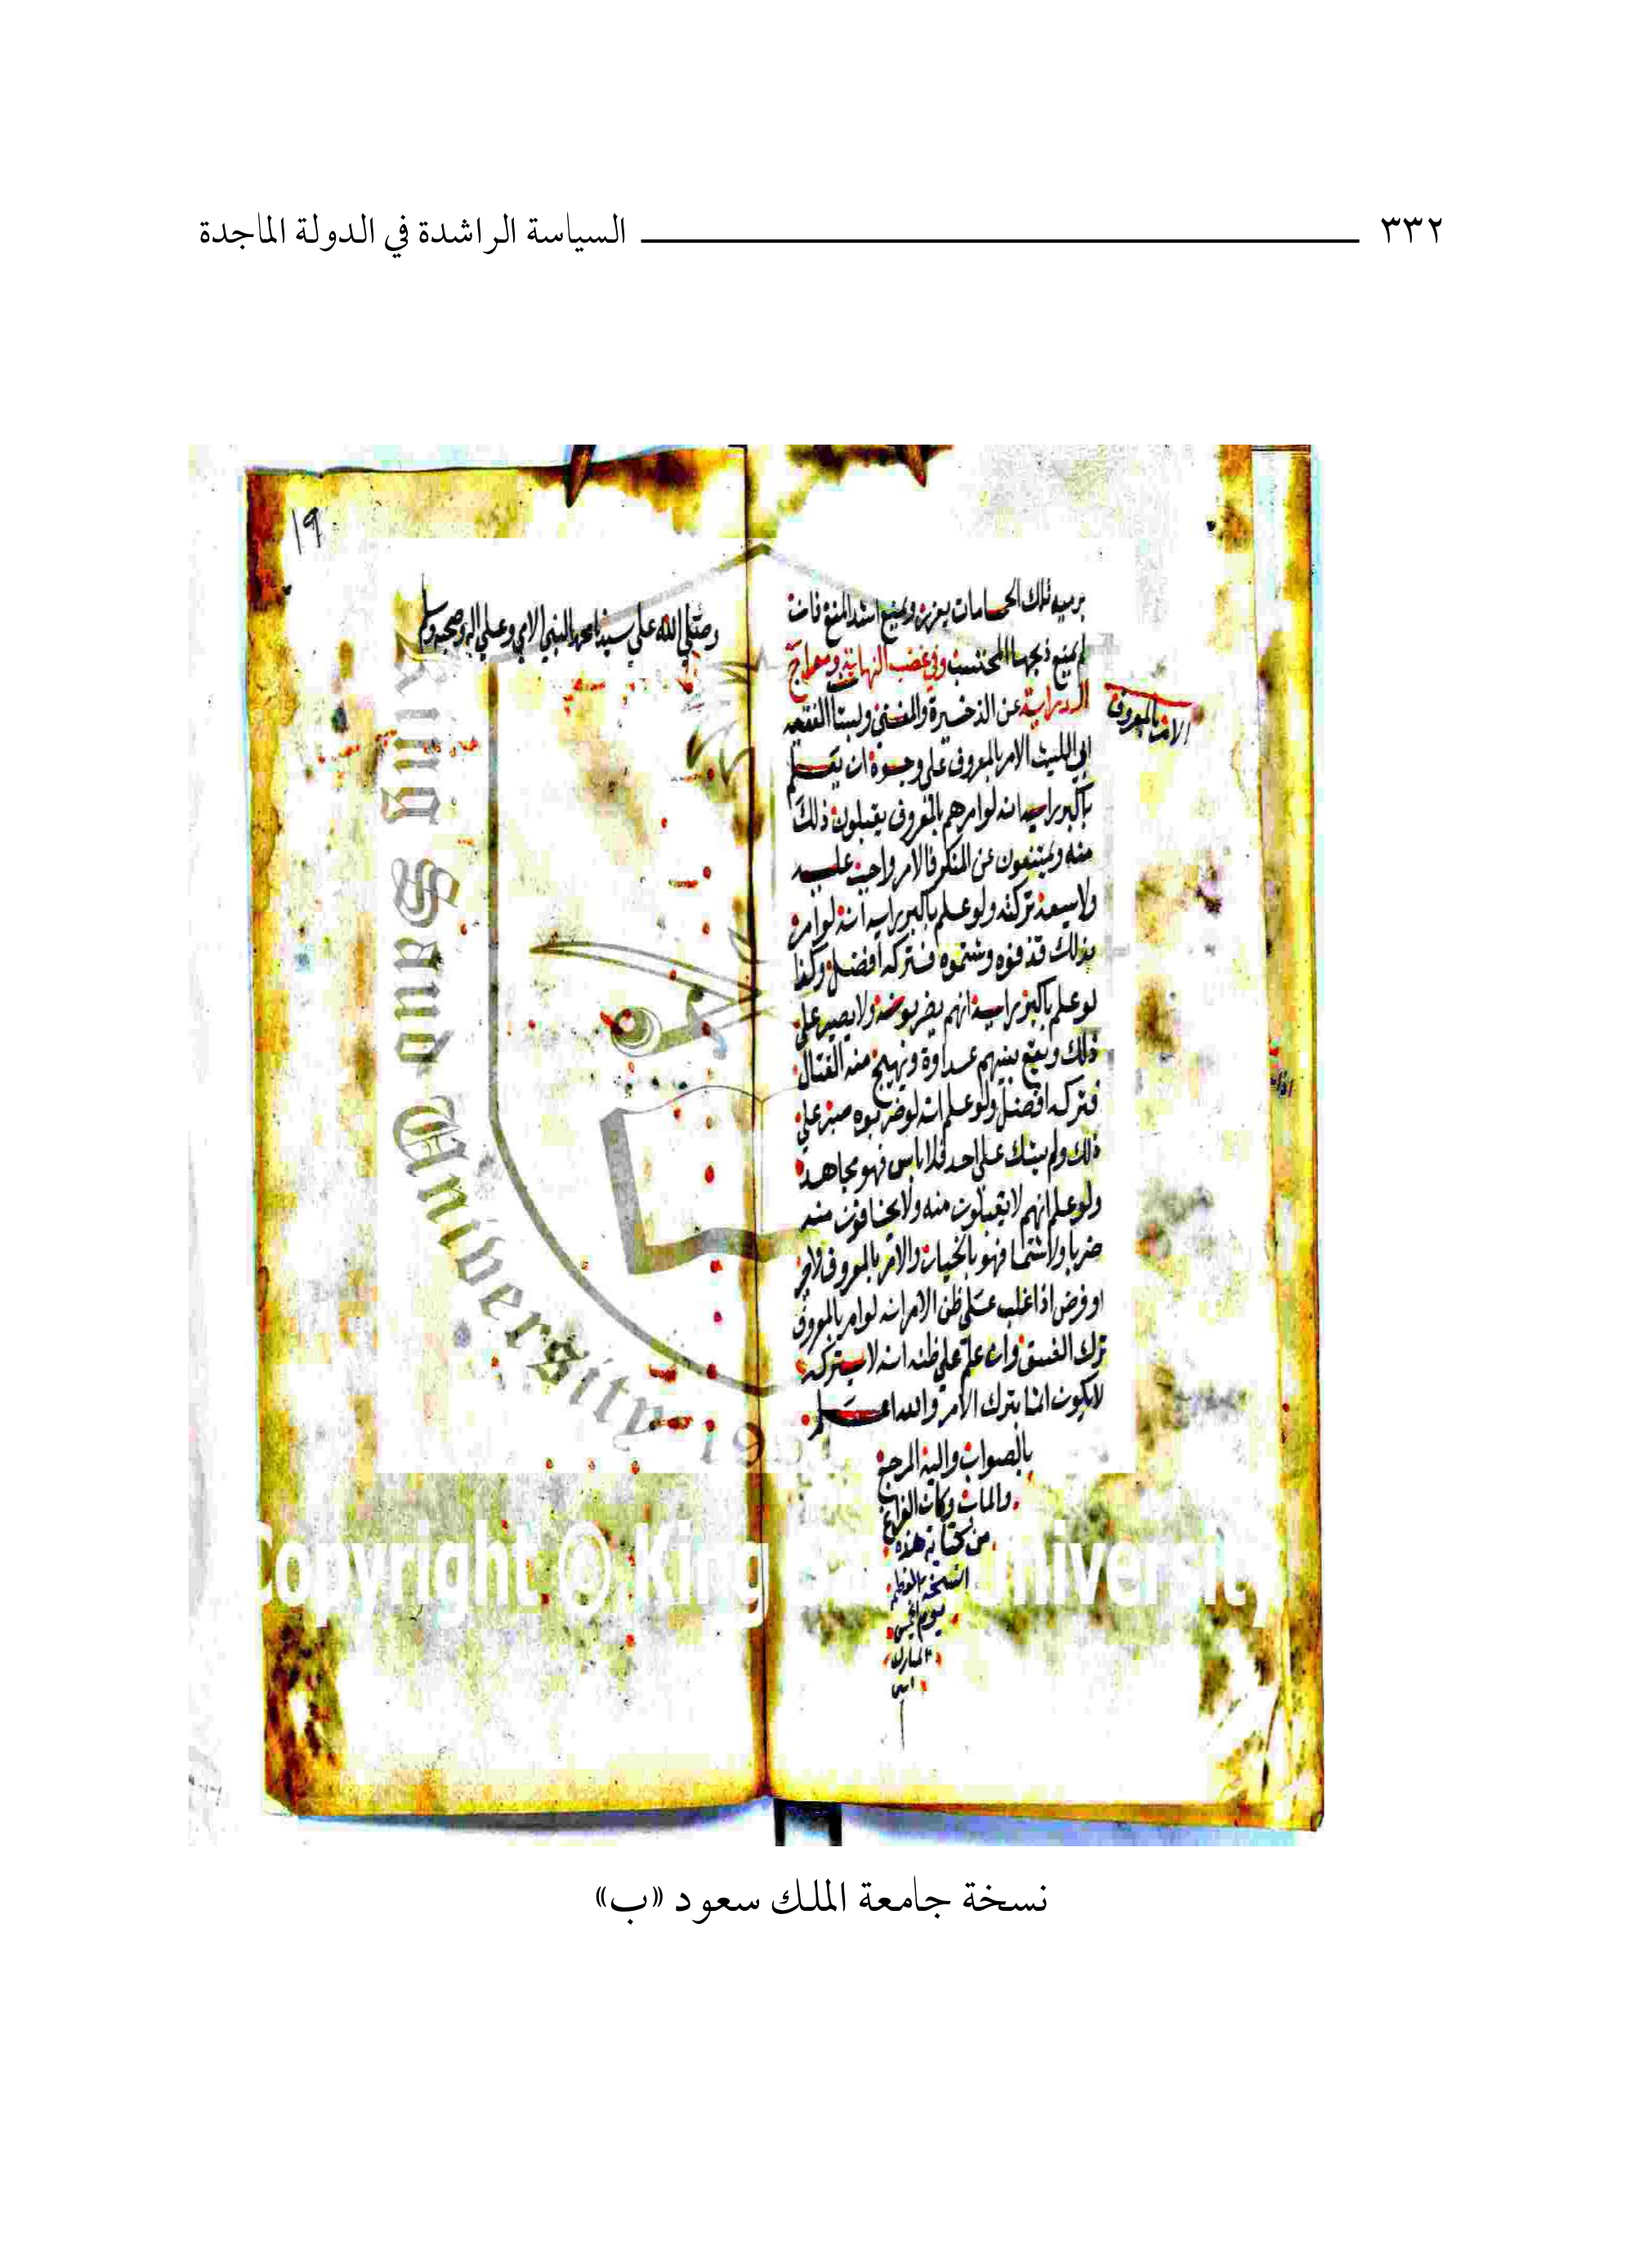 ٣٣٢ السياسة الراشدة في الدولة الماجدة
برميه تلك الحمامات يعزر ويمنع اشد المنع فان
لم يمتنع ذبحها المحتسب وفي غضب النهاية ومعراج
الدراية عن الذخيرة والمغني ولبستان الفقيه
ابي الليث الامر بالمعروف على وجوه ان يعلم
باكبر رايه انه لو امرهم بالمعروف يقبلون ذلك
منه ويمتنعون عن المنكر فالامر واجب عليه
ولا يسعه تركه ولو علم باكبر رايه انه لو امر
بذلك قذفوه وشتموه فتركه افضل وكذا
لو علم باكبر رايه انهم يضربونه ولا يصبر على
ذلك ويقع بينهم عداوة وتهيج منه القتال
فتركه افضل ولو علم انه لو ضربوه صبر على
ذلك ولم يشك على احد فلا باس فهو مجاهد
ولو علم انهم لا يقبلون منه ولا يخافون منه
ضربا ولا شتما فهو بالخيار والامر بالمعروف
او فرض اذا غلب على ظن الامر انه لو امر بالمعروف
ترك الفسق وان علم على ظنه انه لا يتركه
لا يكون اثما بترك الامر والله اعلم
بالصواب واليه المرجع
والماب وكان الفراغ
من كتابة هذه
النسخة
يوم الخميس
المبارك
الامر بالمعروف
١٩
وصلى الله على سيدنا محمد النبي الامي وعلى اله وصحبه وسلم
King Saud University 19
Copyright © King Saud University
نسخة جامعة الملك سعود «ب»